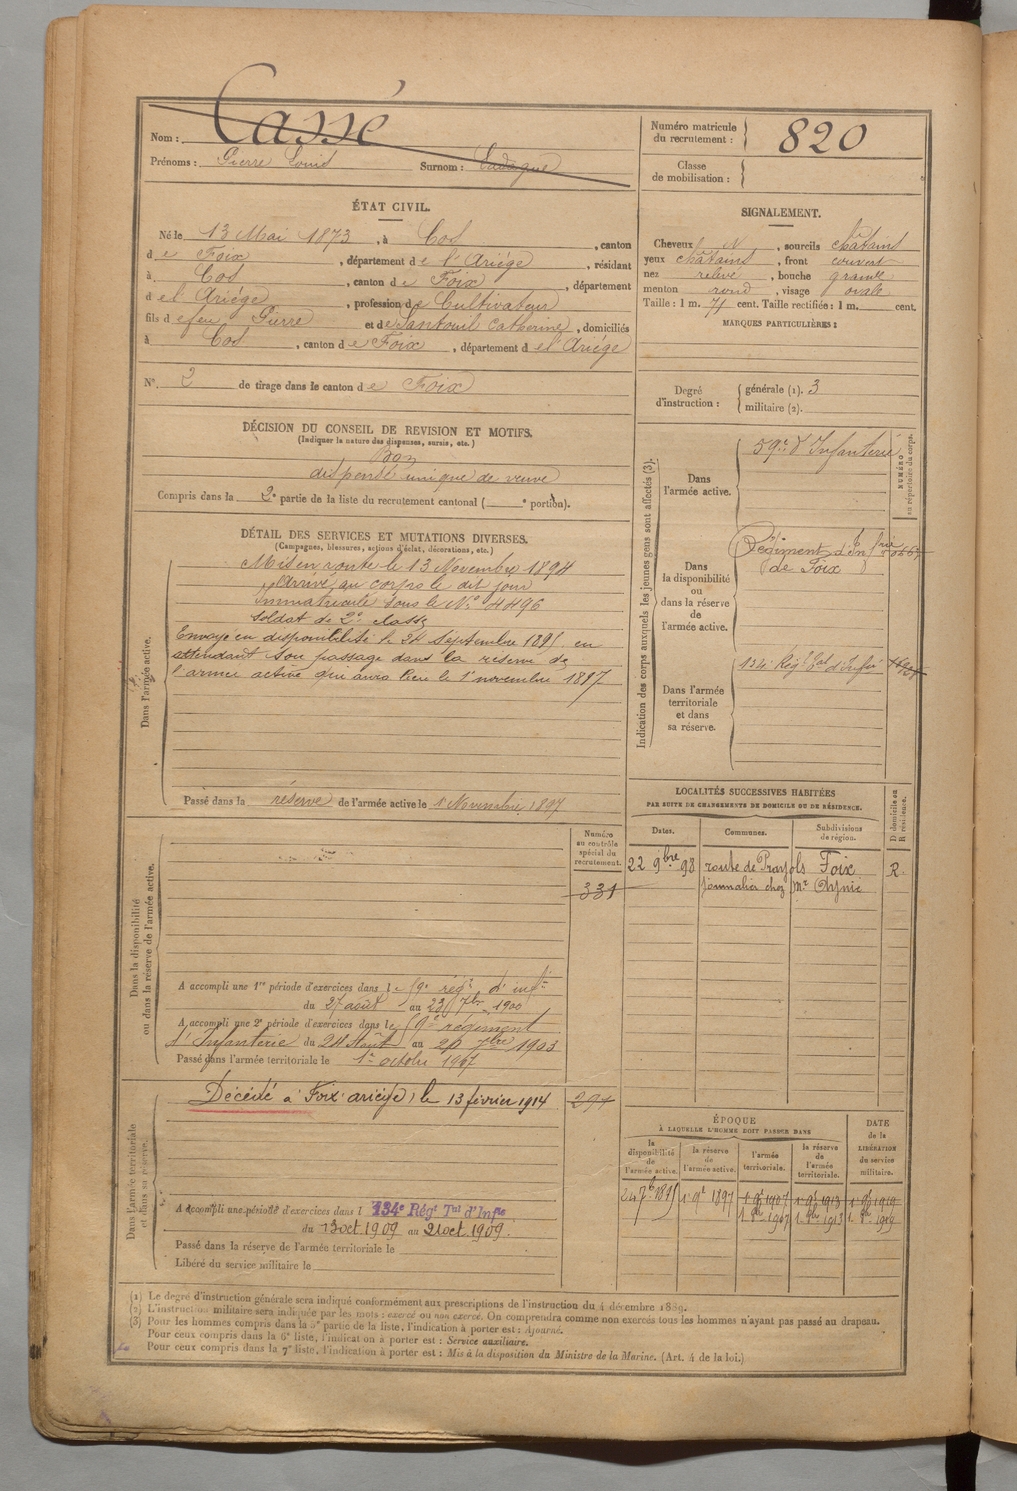 Nom : Cassé
Prénoms : Pierre Louis Surnom : Cadogue
Numéro matricule du recrutement : 820
Classe de mobilisation :
ÉTAT CIVIL.
Né le 13 Mai 1873, à Cos, canton
de Foix, département de l'Ariége, résidant
à Cos, canton de Foix, département
de l'Ariége, profession de Cultivateur
fils de feu Pierre et de Santouil Catherine, domiciliés
à Cos, canton de Foix, département de l'Ariége
N° 2 de tirage dans le canton de Foix
SIGNALEMENT.
Cheveux N, sourcils châtains
yeux châtains, front couvert
nez relevé, bouche grande
menton rond, visage ovale
Taille : 1 m. 71 cent. Taille rectifiée : 1 m. cent.
MARQUES PARTICULIÈRES :
Degré d'instruction : générale (1). 3
militaire (2).
DÉCISION DU CONSEIL DE REVISION ET MOTIFS.
(Indiquer la nature des dispenses, sursis, etc.)
Bon
dispensé unique de veuve
Compris dans la 2e partie de la liste du recrutement cantonal ( e portion).
DÉTAIL DES SERVICES ET MUTATIONS DIVERSES.
(Campagnes, blessures, actions d'éclat, décorations, etc.)
Dans l'armée active.
Mis en route le 13 Novembre 1894
Arrivé au corps le dit jour
Immatriculé sous le N° 4496
Soldat de 2e classe
Envoyé en disponibilité le 24 Septembre 1895 en
attendant son passage dans la réserve de
l'armée active qui aura lieu le 1er novembre 1897
Passé dans la réserve de l'armée active le 1 Novembre 1897
Indication des corps auxquels les jeunes gens sont affectés (3).
NUMÉRO au répertoire du corps.
Dans l'armée active.
59e d'Infanterie
Dans la disponibilité ou dans la réserve de l'armée active.
Régiment d'Infrie
de Foix
Dans l'armée territoriale et dans sa réserve.
134e Régt Tal d'Infie
LOCALITÉS SUCCESSIVES HABITÉES
PAR SUITE DE CHANGEMENTS DE DOMICILE OU DE RÉSIDENCE.
D domicile ou R résidence.
Dates. Communes. Subdivisions de région.
22 9bre 98 route de Prayols Foix R.
Journalier chez Mr
Dans la disponibilité ou dans la réserve de l'armée active.
Numéro au contrôle spécial du recrutement.
331
A accompli une 1re période d'exercices dans le 59e régt d'inft
du 27 août au 23 7bre 1900
A accompli une 2e période d'exercices dans le 59e régiment
d'Infanterie du 24 Août au 20 7bre 1903
Passé dans l'armée territoriale le 1er octobre 1907
Dans l'armée territoriale et dans sa réserve.
Décédé à Foix (ariège) le 13 février 1914
291
A accompli une période d'exercices dans l 134e Régt Tal d'Infie
du 13 oct 1909 au 21 oct 1909.
Passé dans la réserve de l'armée territoriale le
Libéré du service militaire le
ÉPOQUE
À LAQUELLE L'HOMME DOIT PASSER DANS
la disponibilité de l'armée active. la réserve de l'armée active. l'armée territoriale. la réserve de l'armée territoriale. DATE de la LIBÉRATION du service militaire.
24 7b 1895 1 9b 1897 1 9b 1907 1 9b 1913 1 9b 1919
1. 8b 1907 1. 8b 1913 1. 8b 1919
(1) Le degré d'instruction générale sera indiqué conformément aux prescriptions de l'instruction du 4 décembre 1889.
(2) L'instruction militaire sera indiquée par les mots : exercé ou non exercé. On comprendra comme non exercés tous les hommes n'ayant pas passé au drapeau.
(3) Pour les hommes compris dans la 5e partie de la liste, l'indication à porter est : Ajourné.
Pour ceux compris dans la 6e liste, l'indication à porter est : Service auxiliaire.
Pour ceux compris dans la 7e liste, l'indication à porter est : Mis à la disposition du Ministre de la Marine. (Art. 4 de la loi.)